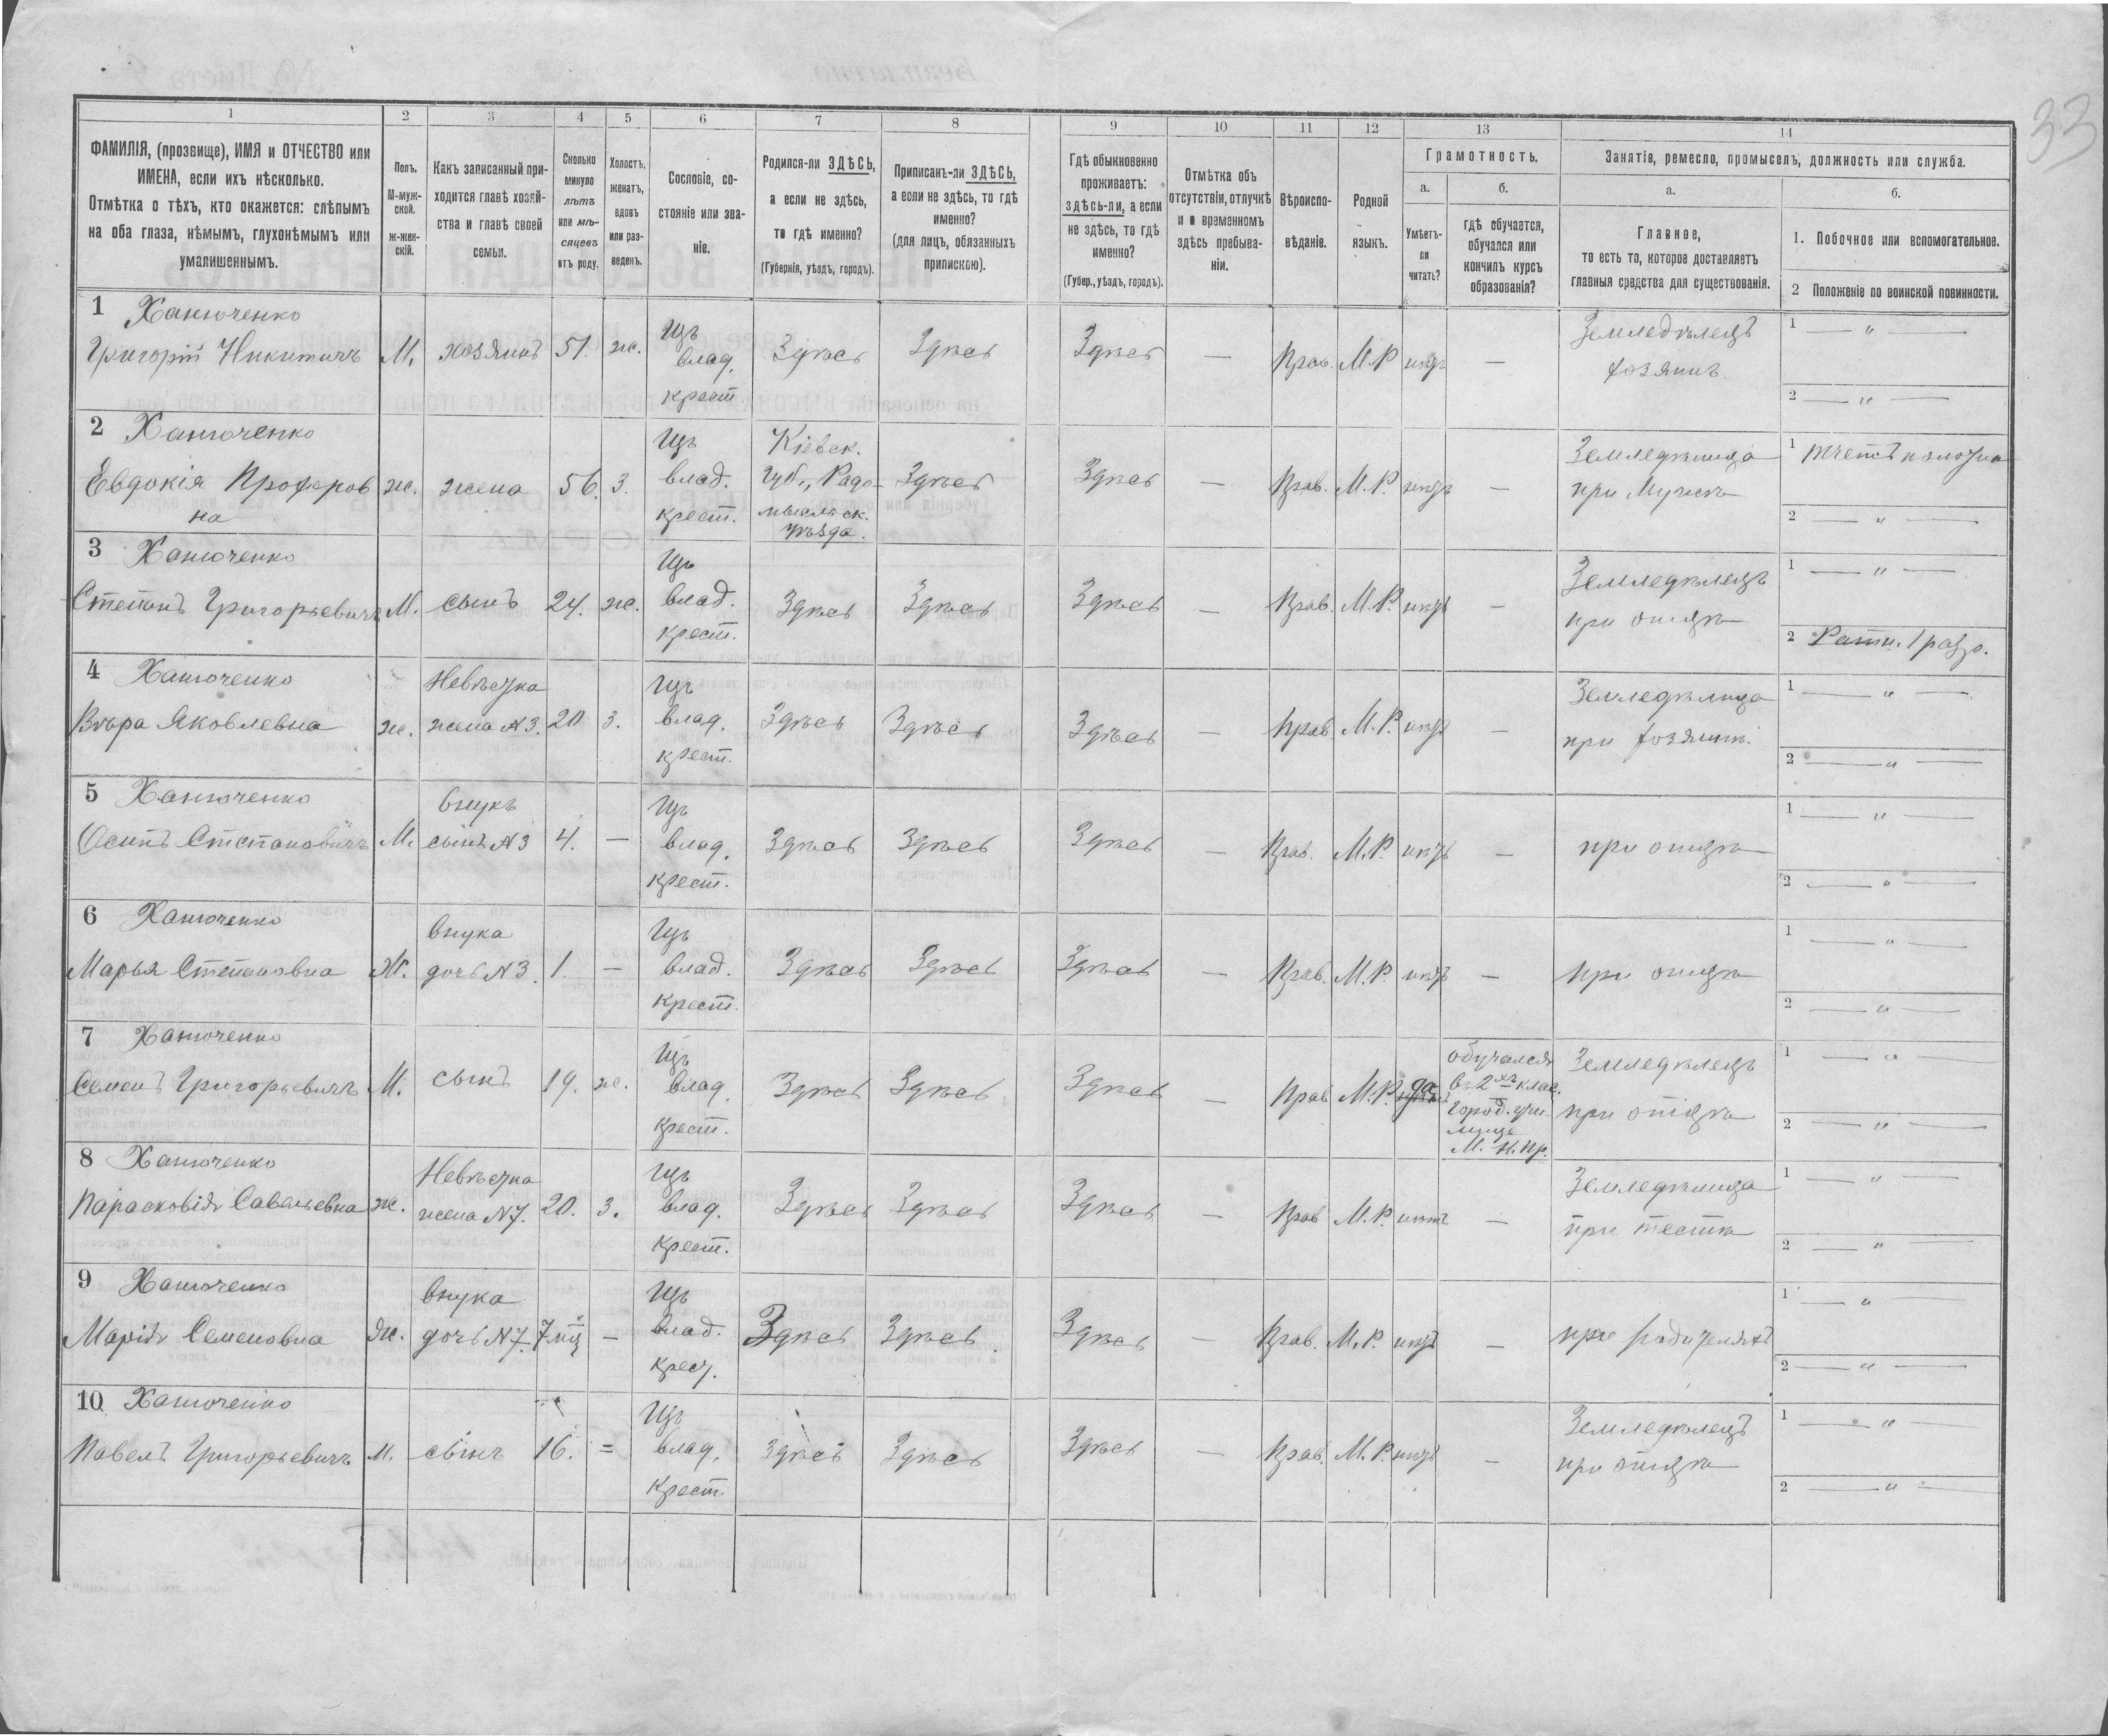 33
1 2 3 4 5 6 7 8 9 10 11 12 13 14
ФАМИЛІЯ, (прозвище), ИМЯ и ОТЧЕСТВО или
ИМЕНА, если ихъ нѣсколько.
Отмѣтка о тѣхъ, кто окажется: слѣпымъ
на оба глаза, нѣмымъ, глухонѣмымъ или
умалишеннымъ.
Полъ.
М-муж-
ской.
ж-жен-
скій.
Какъ записанный при-
ходится главѣ хозяй-
ства и главѣ своей
семьи.
Сколько
минуло
лѣтъ
или мѣ-
сяцевъ
отъ роду.
Холостъ,
женатъ,
вдовъ
или раз-
веденъ.
Сословіе, со-
стояніе или зва-
ніе.
Родился-ли ЗДѢСЬ,
а если не здѣсь,
то гдѣ именно?
(Губернія, уѣздъ, городъ).
Приписанъ-ли ЗДѢСЬ,
а если не здѣсь, то гдѣ
именно?
(для лицъ, обязанныхъ
припискою).
Гдѣ обыкновенно
проживаетъ:
здѣсь-ли, а если
не здѣсь, то гдѣ
именно?
(Губер., уѣздъ, городъ).
Отмѣтка объ
отсутствіи, отлучкѣ
и о временномъ
здѣсь пребыва-
ніи.
Вѣроиспо-
вѣданіе.
Родной
языкъ.
Грамотность.
а.
Умѣетъ-
ли
читать?
б.
гдѣ обучается,
обучался или
кончилъ курсъ
образованія?
Занятіе, ремесло, промыселъ, должность или служба.
а.
Главное,
то есть то, которое доставляетъ
главныя средства для существованія.
б.
1. Побочное или вспомогательное.
2 Положеніе по воинской повинности.
1 Ханюченко
Григорій Никитичъ М. хозяинъ 51. ж. Изъ влад. крест. Здѣсь Здѣсь Здѣсь — Прав. М.Р. нѣтъ — Земледѣлецъ хозяинъ.
1 — " —
2 — " —
2 Ханюченко
Евдокія Прохоров ж. жена 56. З. Изъ влад. крест. Кіевск. Губ., Радо- мысльск. уѣзда. Здѣсь Здѣсь — Прав. М.Р. нѣтъ — Земледѣлица при Мужѣ
на
1
2 — " —
3 Ханюченко
Степанъ Григорьевичъ М. сынъ 24. ж. Изъ влад. крест. Здѣсь Здѣсь Здѣсь — Прав. М.Р. нѣтъ — Земледѣлецъ при отцѣ
1 — " —
2 Ратн. 1 разр.
4 Ханюченко
Вѣра Яковлевна ж. Невѣстка жена N3. 20 З. Изъ влад. крест. Здѣсь Здѣсь Здѣсь — Прав. М.Р. нѣтъ — Земледѣлица при хозяинѣ.
1 — " —
2 — " —
5 Ханюченко
Осипъ Степановичъ М. внукъ сынъ N3 4. — Изъ влад. крест. Здѣсь Здѣсь Здѣсь — Прав. М.Р. нѣтъ — при отцѣ
1 — " —
2 — " —
6 Ханюченко
Марья Степановна Ж. внука дочь N3. 1. — Изъ влад. крест. Здѣсь Здѣсь Здѣсь — Прав. М.Р. нѣтъ — при отцѣ
1 — " —
2 — " —
7 Ханюченко
Семенъ Григорьевичъ М. сынъ 19. ж. Изъ влад. крест. Здѣсь Здѣсь Здѣсь — Прав М.Р. да обучался въ 2хъ клас. Город. учи- лище М. Н. Пр. Земледѣлецъ при отцѣ
1 — "
2 — " —
8 Ханюченко
Парасковія Савельевна ж. Невѣстка жена N7. 20. З. Изъ влад. крест. Здѣсь Здѣсь Здѣсь — Прав М.Р. нѣтъ — Земледѣлица при тестѣ
1 — " —
2 — " —
9 Ханюченко
Марія Семеновна Ж. внука дочь N7. 7 мц — Изъ влад. крест. Здѣсь Здѣсь. Здѣсь — Прав. М.Р. нѣтъ — при родителяхъ
1 — " —
2 — " —
10 Ханюченко
Павелъ Григорьевичъ М. сынъ 16. = Изъ влад. крест. Здѣсь Здѣсь Здѣсь — Прав. М.Р. нѣтъ — Земледѣлецъ при отцѣ
1 — " —
2 — " —